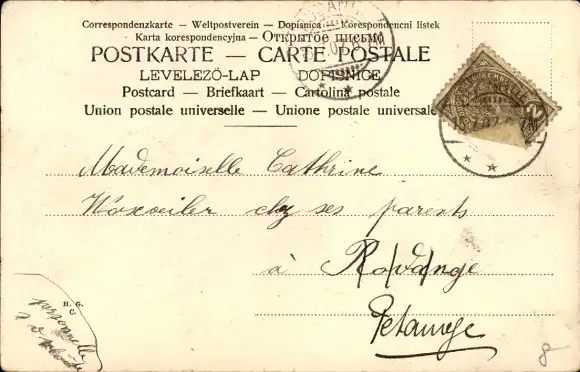 Correspondenzkarte — Weltpostverein — Dopisnica — Korespondencni listek
Karta korespondencyjna — Открытое письмо
POSTKARTE — CARTE POSTALE
LEVELEZŐ-LAP DOPISNICE
Postcard — Briefkaart — Cartolina postale
Union postale universelle — Unione postale universale
Mademoiselle Cathrine
chez ses parents
à Rodange
Petange
H. G.
C.
personnelle
8